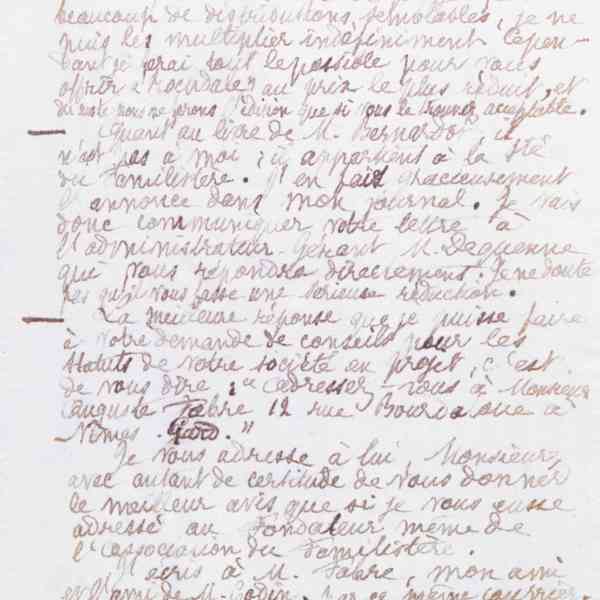 beaucoup de distributions semblables, je ne
puis les multiplier indéfiniment. Cepen-
dant je ferai tout le possible pour vous
offrir "Rochdale" au prix le plus réduit, et
du reste nous ne ferons l'édition que si vous le trouvez acceptable.
Quant au livre de M. Bernardot il
n'est pas à moi ; il appartient à la Sté
du Familistère. J'en fais gracieusement
l'annonce dans mon journal. Je vais
donc communiquer votre lettre à
l'administrateur-Gérant M. Dequenne
qui vous répondra directement. Je ne doute
pas qu'il vous fasse une sérieuse réduction.
La meilleure réponse que je puisse faire
à votre demande de conseils pour les
statuts de votre société en projet, c'est
de vous dire : "adressez-vous à Monsieur
Auguste Fabre 12 rue Bourdaloue à
Nîmes. Gard."
Je vous adresse à lui, Monsieur,
avec autant de certitude de vous donner
le meilleur avis que si je vous eusse
adressé au Fondateur même de
l'association du Familistère.
J'écris à M. Fabre, mon ami
et l'ami de M. Godin, par ce même courrier.